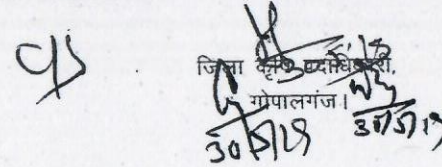 जिला कृषि पदाधिकारी,
गोपालगंज।
30/5/19 30/5/19